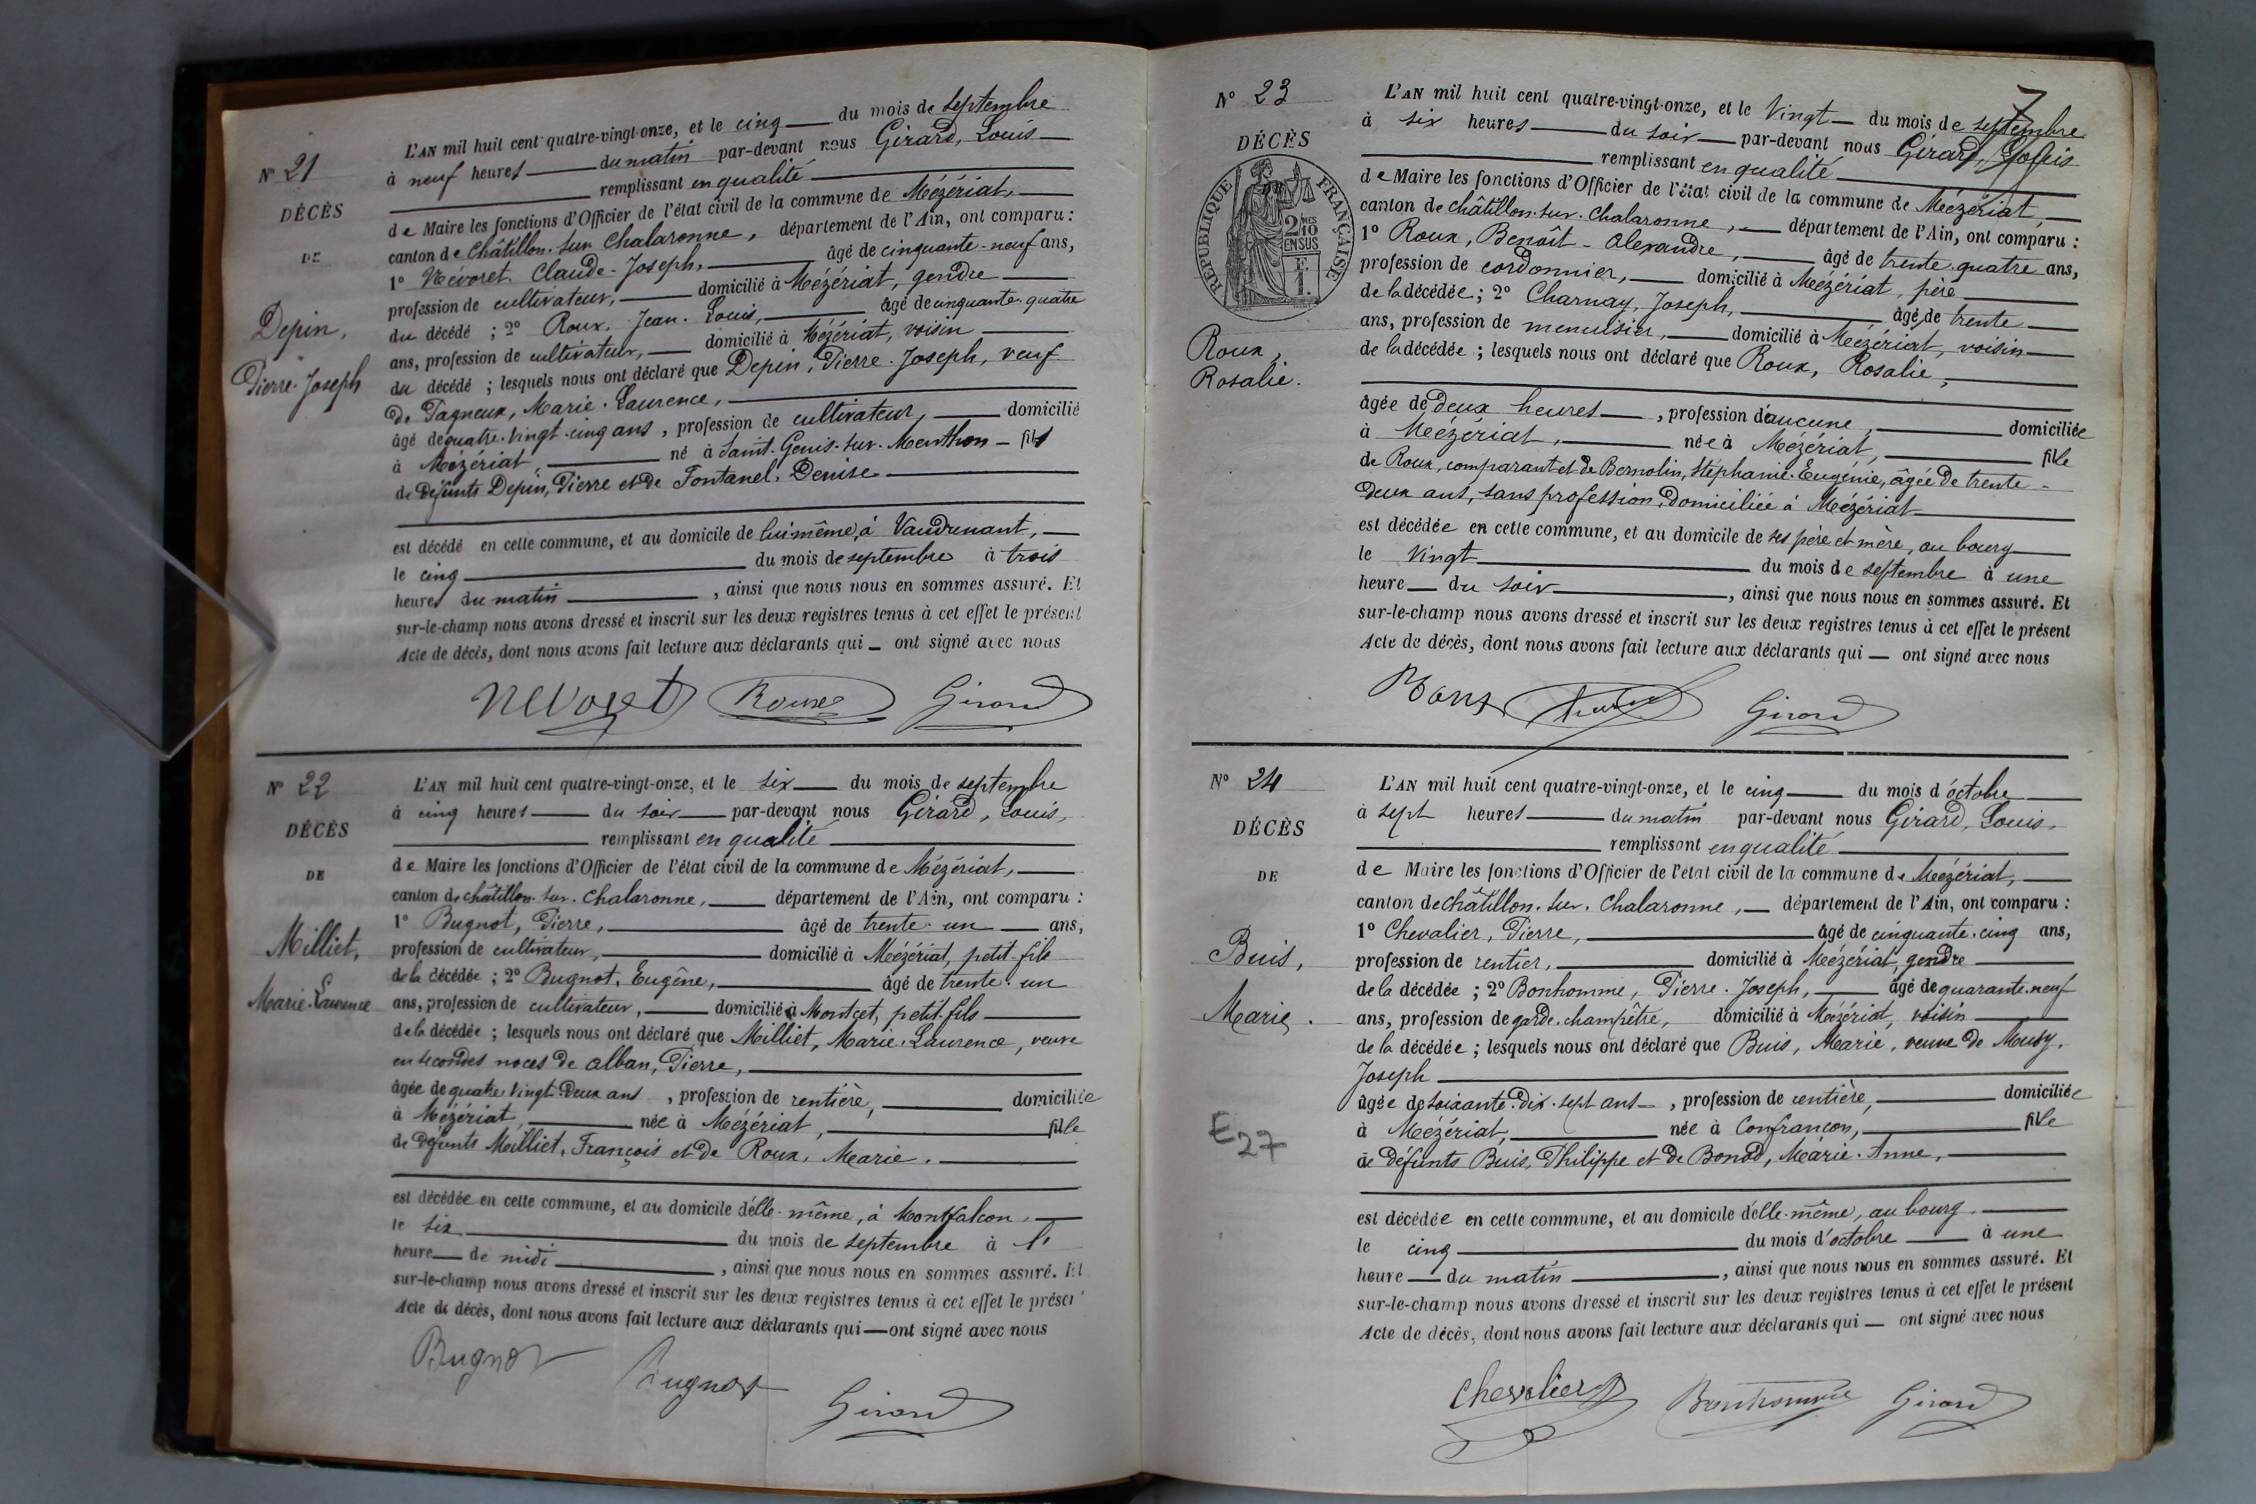 N° 21
DÉCÈS
DE
Depin,
Pierre-Joseph
L'AN mil huit cent quatre-vingt-onze, et le cinq du mois de septembre
à neuf heures du matin par-devant nous Girard, Louis
remplissant en qualité
de Maire les fonctions d'Officier de l'état civil de la commune de Mézériat,
canton de Châtillon-sur-Chalaronne, département de l'Ain, ont comparu :
1° Névoret, Claude-Joseph, âgé de cinquante-neuf ans,
profession de cultivateur, domicilié à Mézériat, gendre
du décédé ; 2° Roux, Jean-Louis, âgé de cinquante-quatre
ans, profession de cultivateur, domicilié à Mézériat, voisin
du décédé ; lesquels nous ont déclaré que Depin, Pierre-Joseph, veuf
de Pagneux, Marie-Laurence,
âgé de quatre-vingt-cinq ans, profession de cultivateur, domicilié
à Mézériat, né à Saint-Genis-sur-Menthon fils
de défunts Depin, Pierre et de Fontanel, Denise
est décédé en cette commune, et au domicile de lui même, à Vaudrenant,
le cinq du mois de septembre à trois
heures du matin, ainsi que nous nous en sommes assuré. Et
sur-le-champ nous avons dressé et inscrit sur les deux registres tenus à cet effet le présent
Acte de décès, dont nous avons fait lecture aux déclarants qui ont signé avec nous
Nevoret Roux Girard
N° 22
DÉCÈS
DE
Milliet,
Marie-Laurence
L'AN mil huit cent quatre-vingt-onze, et le six du mois de septembre
à cinq heures du soir par-devant nous Girard, Louis,
remplissant en qualité
de Maire les fonctions d'Officier de l'état civil de la commune de Mézériat,
canton de Châtillon-sur-Chalaronne, département de l'Ain, ont comparu :
1° Bugnot, Pierre, âgé de trente-un ans,
profession de cultivateur, domicilié à Mézériat, petit-fils
de la décédée ; 2° Bugnot, Eugêne, âgé de trente-un
ans, profession de cultivateur, domicilié à Montcet, petit-fils
de la décédée ; lesquels nous ont déclaré que Milliet, Marie-Laurence, veuve
en secondes noces de Alban, Pierre,
âgée de quatre-vingt-deux ans, profession de rentière, domiciliée
à Mézériat, née à Mézériat, fille
de défunts Milliet, François et de Roux, Marie.
est décédée en cette commune, et au domicile d'elle-même, à Montfalcon,
le six du mois de septembre à l'
heure de midi, ainsi que nous nous en sommes assuré. Et
sur-le-champ nous avons dressé et inscrit sur les deux registres tenus à cet effet le présent
Acte de décès, dont nous avons fait lecture aux déclarants qui ont signé avec nous
Bugnot Bugnot Girard
7
N° 23
DÉCÈS
RÉPUBLIQUE FRANÇAISE
2/10 EN SUS
F. 1.
Roux,
Rosalie.
L'AN mil huit cent quatre-vingt-onze, et le Vingt du mois de septembre
à six heures du soir par-devant nous Girard, Louis
remplissant en qualité
de Maire les fonctions d'Officier de l'état civil de la commune de Mézériat,
canton de Châtillon-sur-Chalaronne, département de l'Ain, ont comparu :
1° Roux, Benoît-Alexandre, âgé de trente-quatre ans,
profession de cordonnier, domicilié à Mézériat, père
de la décédée ; 2° Charnay, Joseph, âgé de trente
ans, profession de menuisier, domicilié à Mézériat, voisin
de la décédée ; lesquels nous ont déclaré que Roux, Rosalie,
âgée de deux heures, profession d'aucune, domiciliée
à Mézériat, née à Mézériat, fille
de Roux, comparant et de Bernolin, Stéphanie-Eugénie, âgée de trente-
deux ans, sans profession, domiciliée à Mézériat
est décédée en cette commune, et au domicile de ses père et mère, au bourg
le Vingt du mois de septembre à une
heure du soir, ainsi que nous nous en sommes assuré. Et
sur-le-champ nous avons dressé et inscrit sur les deux registres tenus à cet effet le présent
Acte de décès, dont nous avons fait lecture aux déclarants qui ont signé avec nous
Roux Girard
N° 24
DÉCÈS
DE
Buis,
Marie.
E27
L'AN mil huit cent quatre-vingt-onze, et le cinq du mois d'octobre
à sept heures du matin par-devant nous Girard, Louis,
remplissant en qualité
de Maire les fonctions d'Officier de l'état civil de la commune de Mézériat,
canton de Châtillon-sur-Chalaronne, département de l'Ain, ont comparu :
1° Chevalier, Pierre, âgé de cinquante-cinq ans,
profession de rentier, domicilié à Mézériat, gendre
de la décédée ; 2° Bonhomme, Pierre-Joseph, âgé de quarante-neuf
ans, profession de garde-champêtre, domicilié à Mézériat, voisin
de la décédée ; lesquels nous ont déclaré que Buis, Marie, veuve de Musy,
Joseph
âgée de soixante-dix-sept ans, profession de rentière, domiciliée
à Mézériat, née à Confrançon, fille
de défunts Buis, Philippe et de Bonod, Marie-Anne,
est décédée en cette commune, et au domicile d'elle-même, au bourg
le cinq du mois d'octobre à une
heure du matin, ainsi que nous nous en sommes assuré. Et
sur-le-champ nous avons dressé et inscrit sur les deux registres tenus à cet effet le présent
Acte de décès, dont nous avons fait lecture aux déclarants qui ont signé avec nous
Chevalier Bonhomme Girard